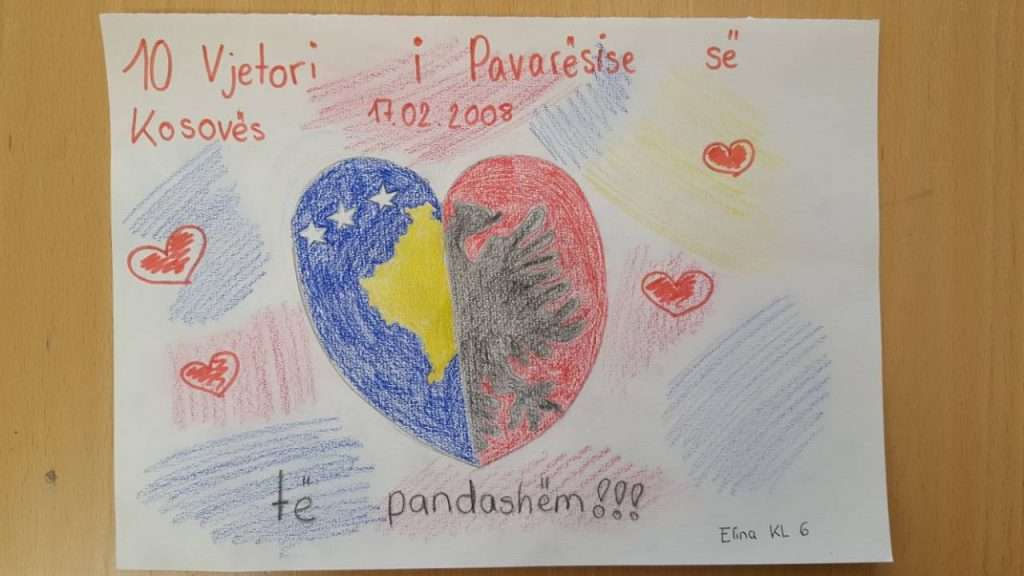 10 Vjetori i Pavarësise së
Kosovës 17.02.2008
të pandashëm!!!
Elina KL 6